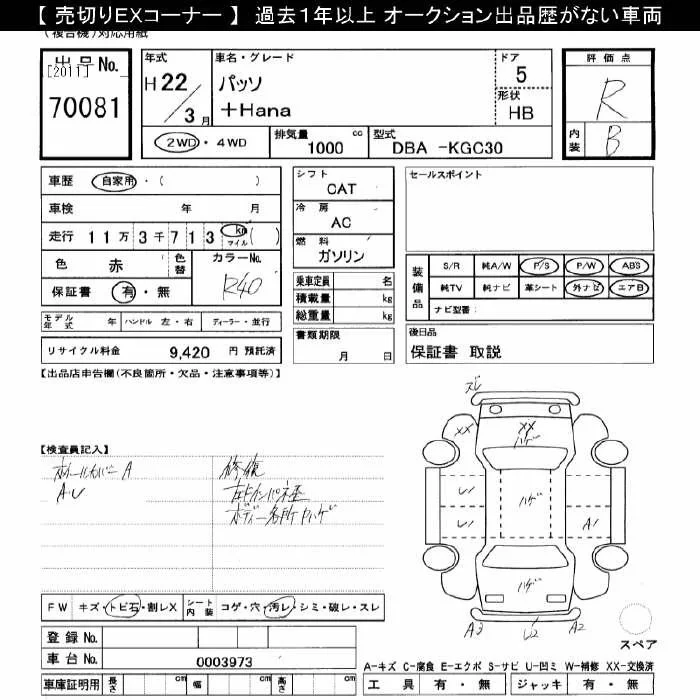 【 売切りEXコーナー 】 過去1年以上 オークション出品歴がない車両
(複合機)対応用紙
出品No.
[2011]
70081
年式
H 22/3月
車名・グレード
パッソ
+Hana
ドア
5
形状
HB
評価点
R
内装
B
2WD・4WD
排気量 1000 cc
型式 DBA -KGC30
車歴 自家用・( )
車検 年 月
走行 11万3千713 km マイル ( )
色 赤 色替
カラーNo.
R40
保証書 有・無
モデル年式 年 ハンドル 左・右 ディーラー・並行
リサイクル料金 9,420 円 預託済
シフト
CAT
冷房
AC
燃料
ガソリン
乗車定員 名
積載量 kg
総重量 kg
書類期限
月 日
セールスポイント
装備品
S/R 純A/W P/S P/W ABS
純TV 純ナビ 革シート 外ナビ エアB
ナビ型番:
後日品
保証書 取説
【出品店申告欄(不良箇所・欠品・注意事項等)】
【検査員記入】
ホイールカバー A
A・U
修復
ボディー各所 ハゲ
ズレ
XX XX
ハゲ
U
ハゲ
U A1
ハゲ
A3 U2 A2
スペア
FW キズ・トビ石・割レX シート内装 コゲ・穴・汚レ・シミ・破レ・スレ
登録 No.
車台 No. 0003973
A-キズ C-腐食 E-エクボ S-サビ U-凹ミ W-補修 XX-交換済
車庫証明用 長さ cm 幅 cm 高さ cm
工具 有・無 ジャッキ 有・無